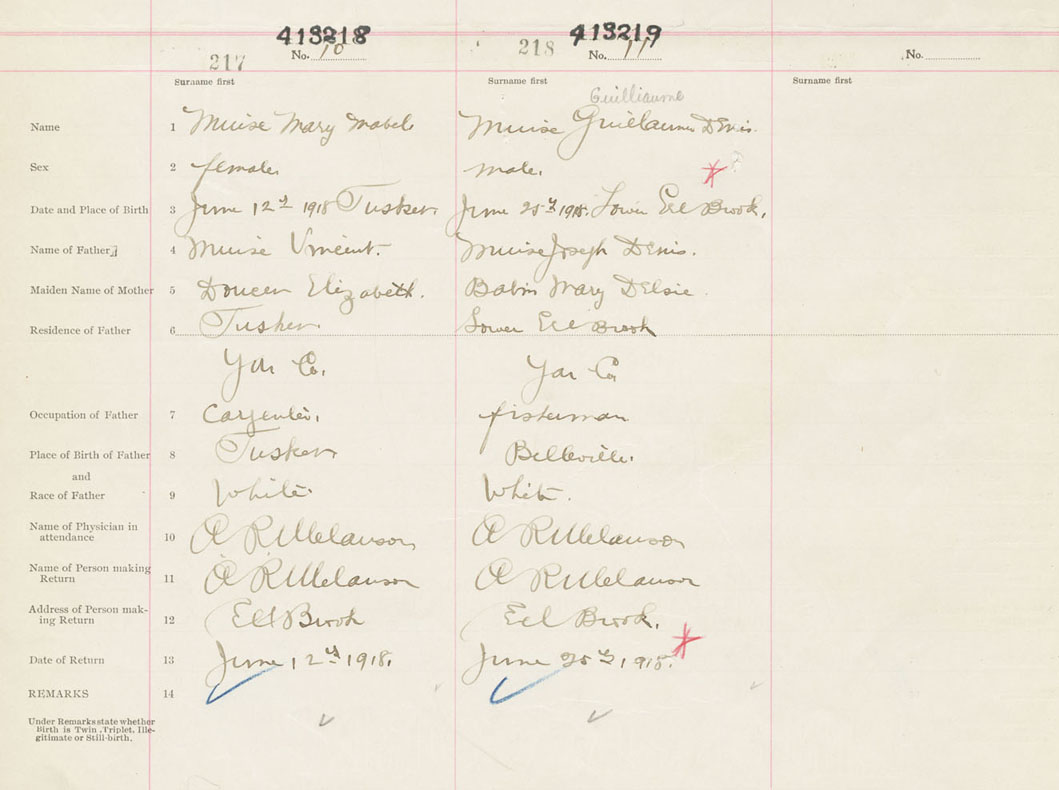 413218 413219
217 No. 10 218 No. 11 No.
Surname first Surname first Surname first
Guilliaume
Name 1 Muise Mary Mabel Muise Guillaume Denis.
Sex 2 female. male.
Date and Place of Birth 3 June 12th 1918 Tusket June 25th 1918. Lower Eel Brook.
Name of Father 4 Muise Vincent. Muise Joseph Denis.
Maiden Name of Mother 5 Doucet Elizabeth. Babin Mary Delsie
Residence of Father 6 Tusket Lower Eel Brook
Yar Co. Yar Co
Occupation of Father 7 Carpenter. fisherman
Place of Birth of Father 8 Tusket Belleville.
and
Race of Father 9 White White.
Name of Physician in
attendance 10 A R Melanson A R Melanson
Name of Person making
Return 11 A R Melanson A R Melanson
Address of Person mak-
ing Return 12 Eel Brook Eel Brook.
Date of Return 13 June 12th 1918. June 25th, 1918.
REMARKS 14
Under Remarks state whether
Birth is Twin, Triplet, Ille-
gitimate or Still-birth.